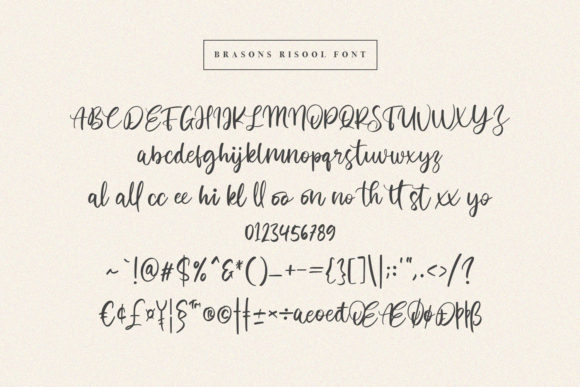 BRASONS RISOOL FONT
ABCDEFGHIJKLMNOPQRSTUVWXYZ
abcdefghijklmnopqrstuvwxyz
al all cc ee hi kl ll oo on no th tt st xx yo
0123456789
~`!@#$%^&*()_+-={}[]\|;:'",.<>/?
€¢£¤¥¦§™®©†‡±×÷æœđŒÆĐøØÞþß